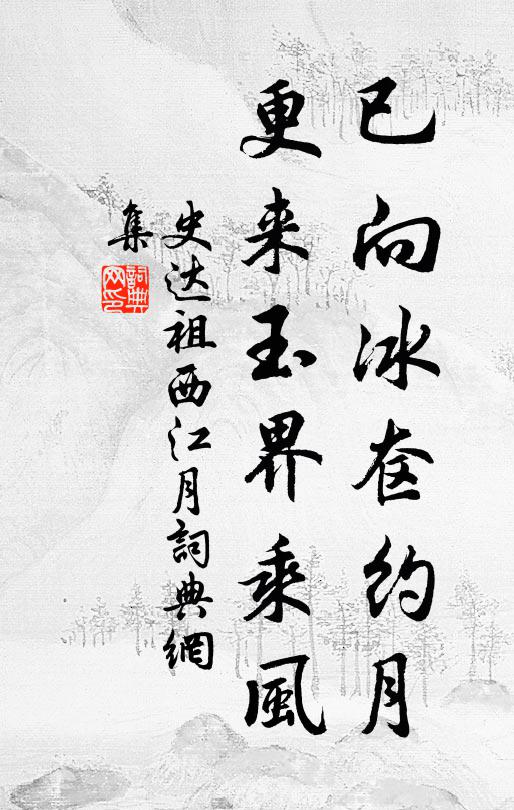 已向冰奁约月
更来玉界乘風
史达祖西江月詞典網
集
詞典
网印